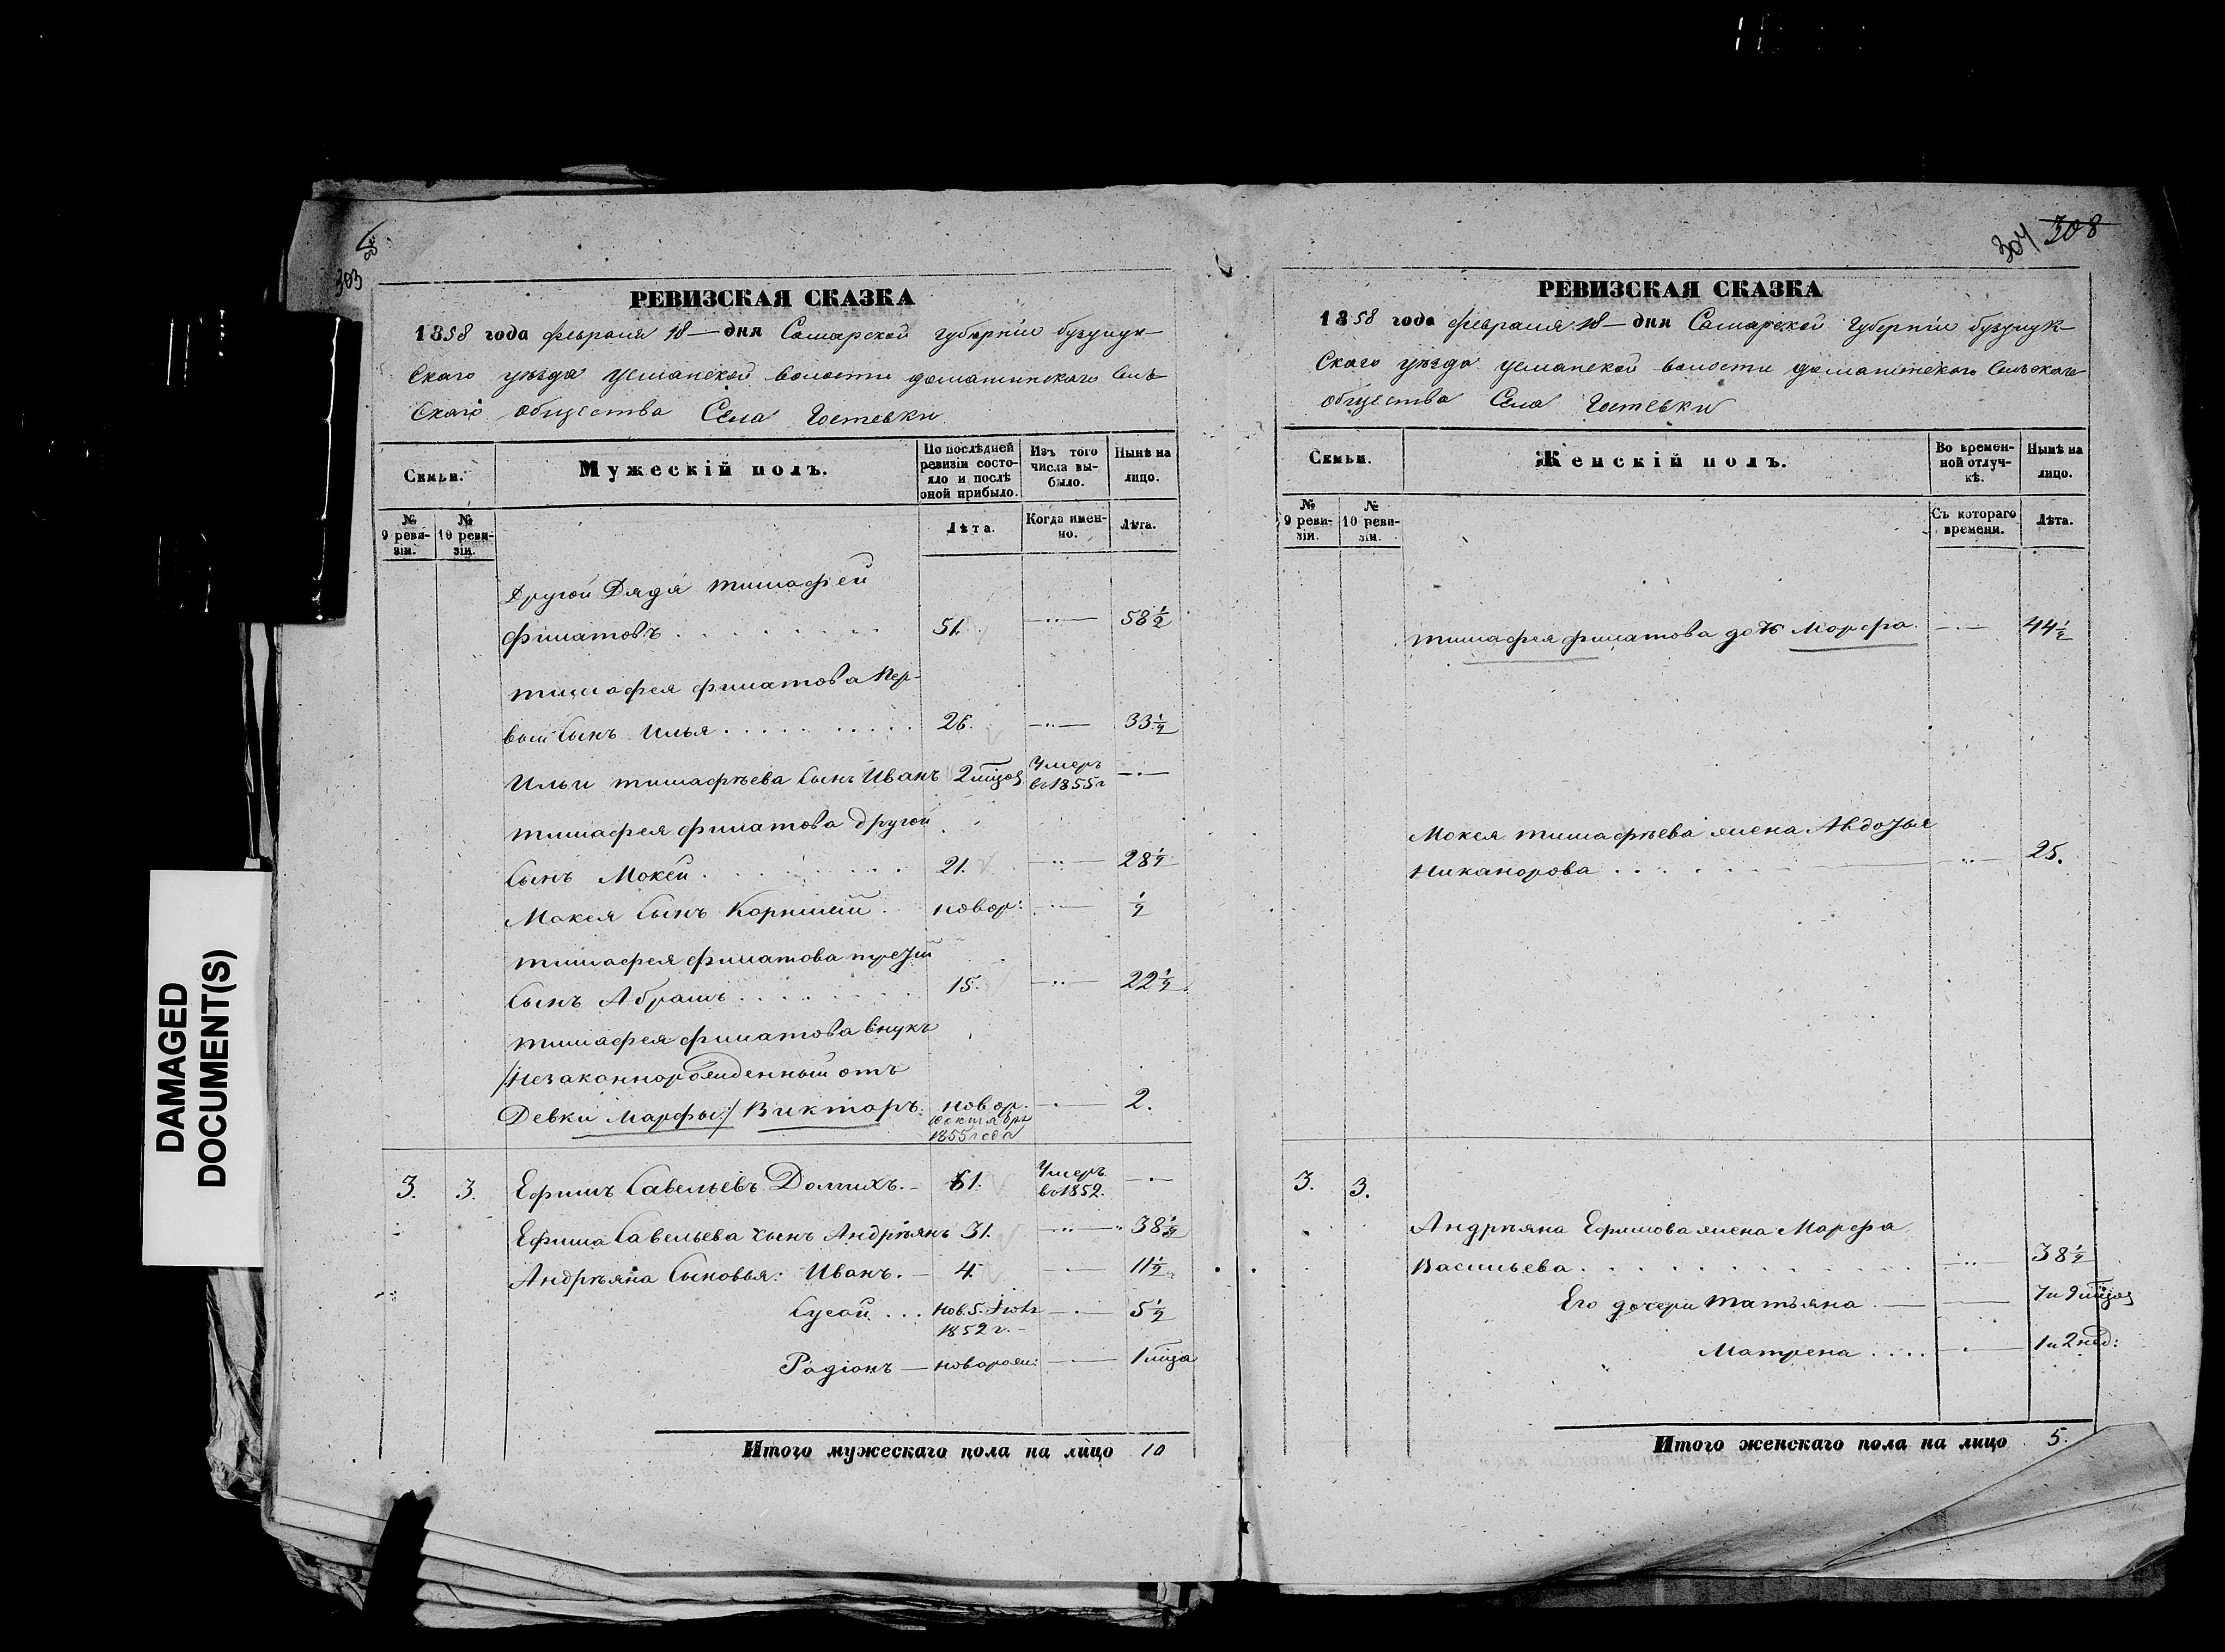 DAMAGED
DOCUMENT(S)
303
РЕВИЗСКАЯ СКАЗКА
1858 года февраля 18 — дня Самарской губернiи бузулук-
скаго уѣзда усманской волости доматинскаго Сель-
скаго общества Села Гостевки
Семьи.
Мужескiй полъ.
По послѣдней ревизiи состо-яло и послѣ оной прибыло.
Изъ того числа вы-было.
Нынѣ на лицо.
№ 9 реви-зiи.
№ 10 реви-зiи.
Лѣта.
Когда имен-но.
Лѣта.
Другой Дядя тимафей
филатовъ . . . . . . . 51. —"— 58 1/2
тимафея филатова пер-
вый Сынъ Илья . . . . . . . . . . 26. —"— 33 1/2
Ильи тимафѣева Сынъ Иванъ 2 мѣсяц Умеръ въ 1855 г —"—
тимафея филатова другой
Сынъ Мокей . . . . . . . . 21. —"— 28 1/2
Мокея Сынъ Корнилий . . новор: —"— 1/2
тимафея филатова третiй
Сынъ Абрамъ . . . . . . . 15. —"— 22 1/2
тимафея филатова внукъ
/Незаконнорожденный отъ
Девки Марфы:/ Викторъ: новор. октября 1855 года —"— 2.
3. 3. Ефимъ Савельевъ Долгихъ. — 61. Умеръ въ 1852. —"—
Ефима Савельева сынъ Андрѣянъ 31. —"— 38 1/2
Андрѣяна Сыновья: Иванъ. — 4. —"— 11 1/2
Сусой . . . нов. 5. 1852 г. —"— 5 1/2
Радiонъ — новорож: —"— 1 мѣсяца
Итого мужескаго пола на лицо 10
304 308
РЕВИЗСКАЯ СКАЗКА
1858 года февраля 18 — дня Самарской губернiи бузулук-
скаго уѣзда усманской волости доматинскаго Сельскаго
общества Села Гостевки
Семьи.
Женскiй полъ.
Во времен-ной отлуч-кѣ.
Нынѣ на лицо.
№ 9 реви-зiи.
№ 10 реви-зiи.
Съ котораго времени.
Лѣта.
тимафея филатова дочь Марфа. —"— 44 1/2
Мокея тимафѣева жена Авдотья
Никанорова . . . . . —"— 25.
3. 3.
Андрѣяна Ефимова жена Марфа
Васильева . . . . . . . . . . . —"— 38 1/2
Его дочери татьяна — — 7 и 9 мѣсяц
Матрена . . . . —"— 1 и 2 нед:
Итого женскаго пола на лицо 5.